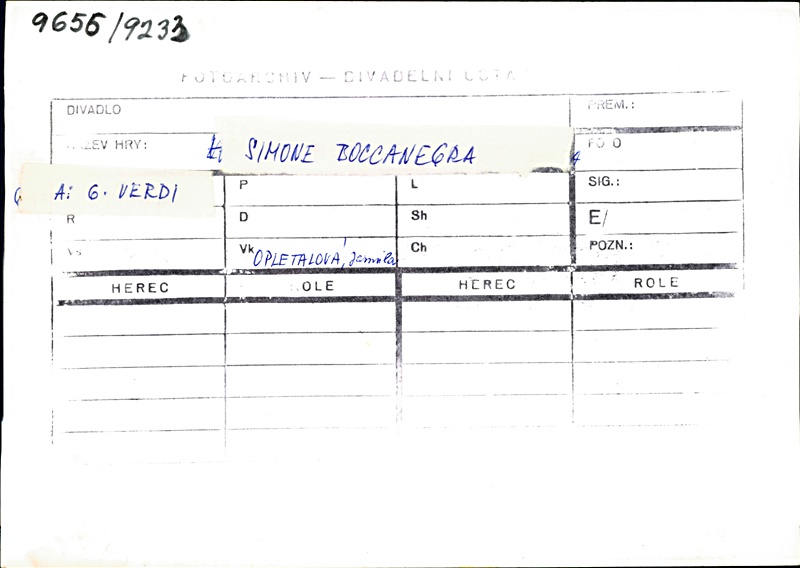 9656/9233
FOTOARCHIV — DIVADELNÍ ÚSTA
DIVADLO PREM.:
ZEV HRY: SIMONE BOCCANEGRA FOTO
A: G. VERDI P L SIG.:
R D Sh E/
Vs Vk OPLETALOVÁ, Jarmila Ch POZN.:
HEREC ROLE HEREC ROLE